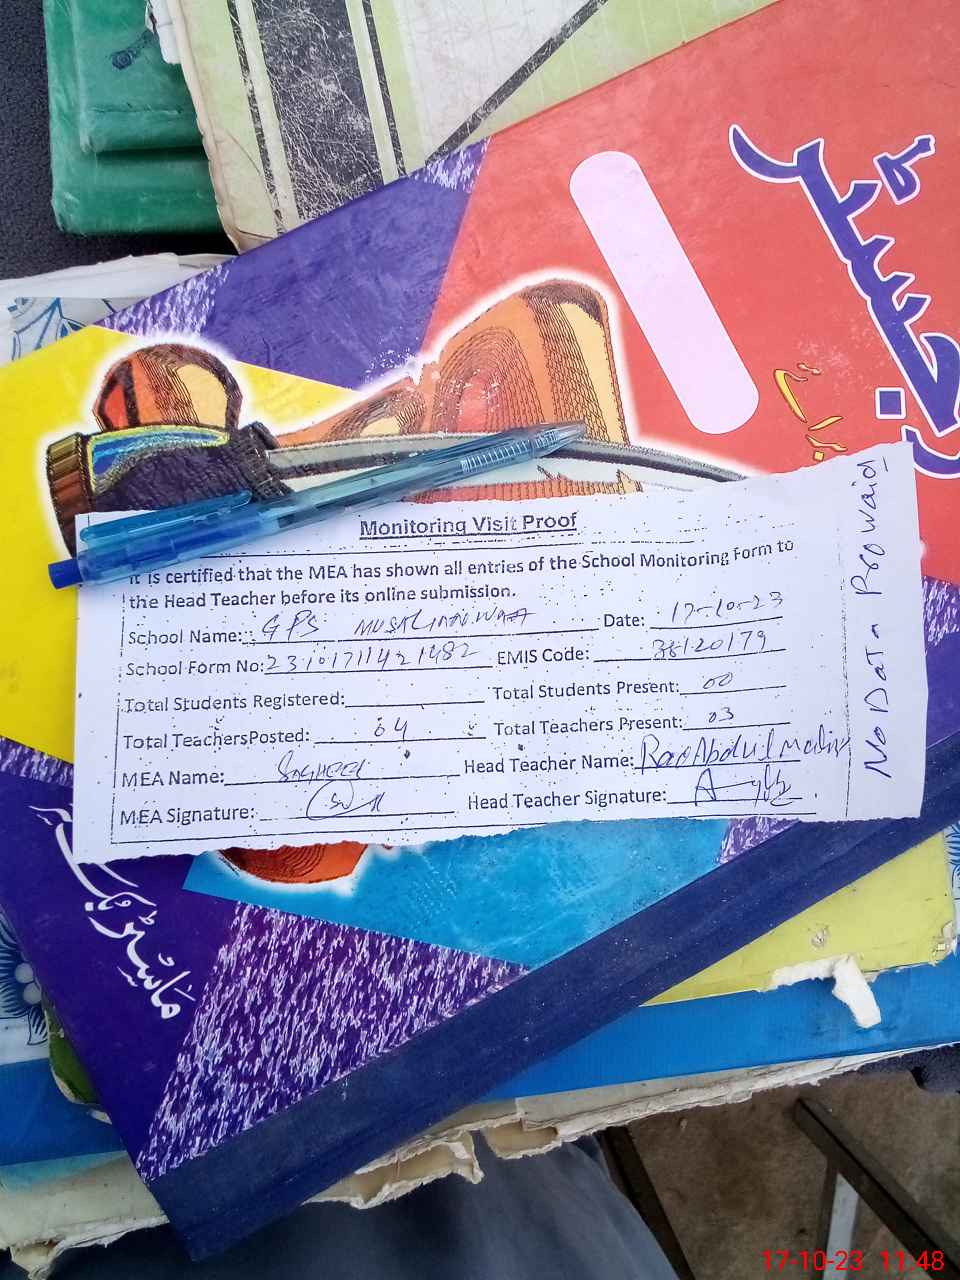 رجسٹر
Monitoring Visit Proof
It is certified that the MEA has shown all entries of the School Monitoring Form to
the Head Teacher before its online submission.
School Name: GPS Date: 17-10-23
School Form No: 23101711421482 EMIS Code: 38120179
Total Students Registered: Total Students Present: 00
Total TeachersPosted: 04 Total Teachers Present: 03
MEA Name: Sagheer Head Teacher Name: Rao Abdul Malik
MEA Signature: Head Teacher Signature:
No Data Prowaid
ماسٹر
17-10-23 11:48